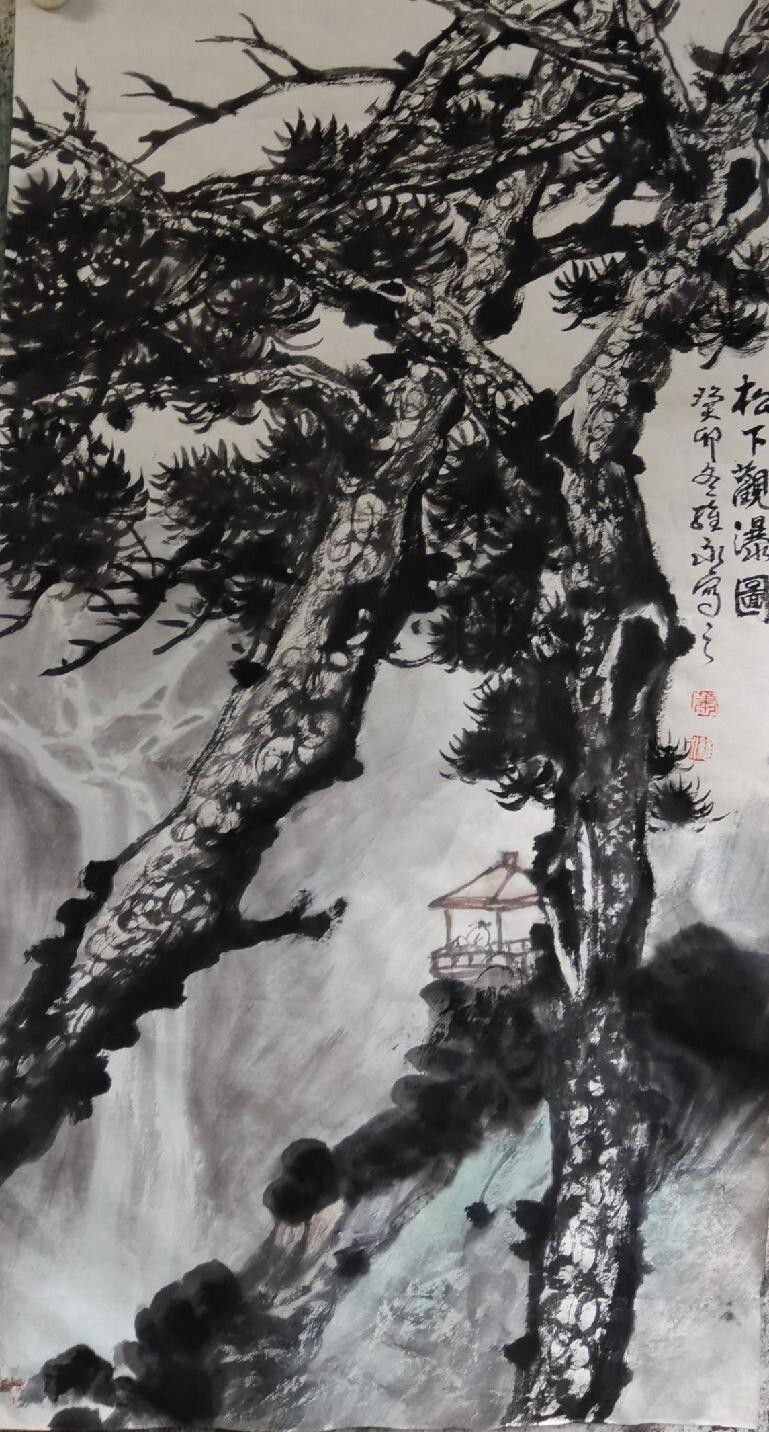 松下觀瀑圖
癸卯冬維永寫之